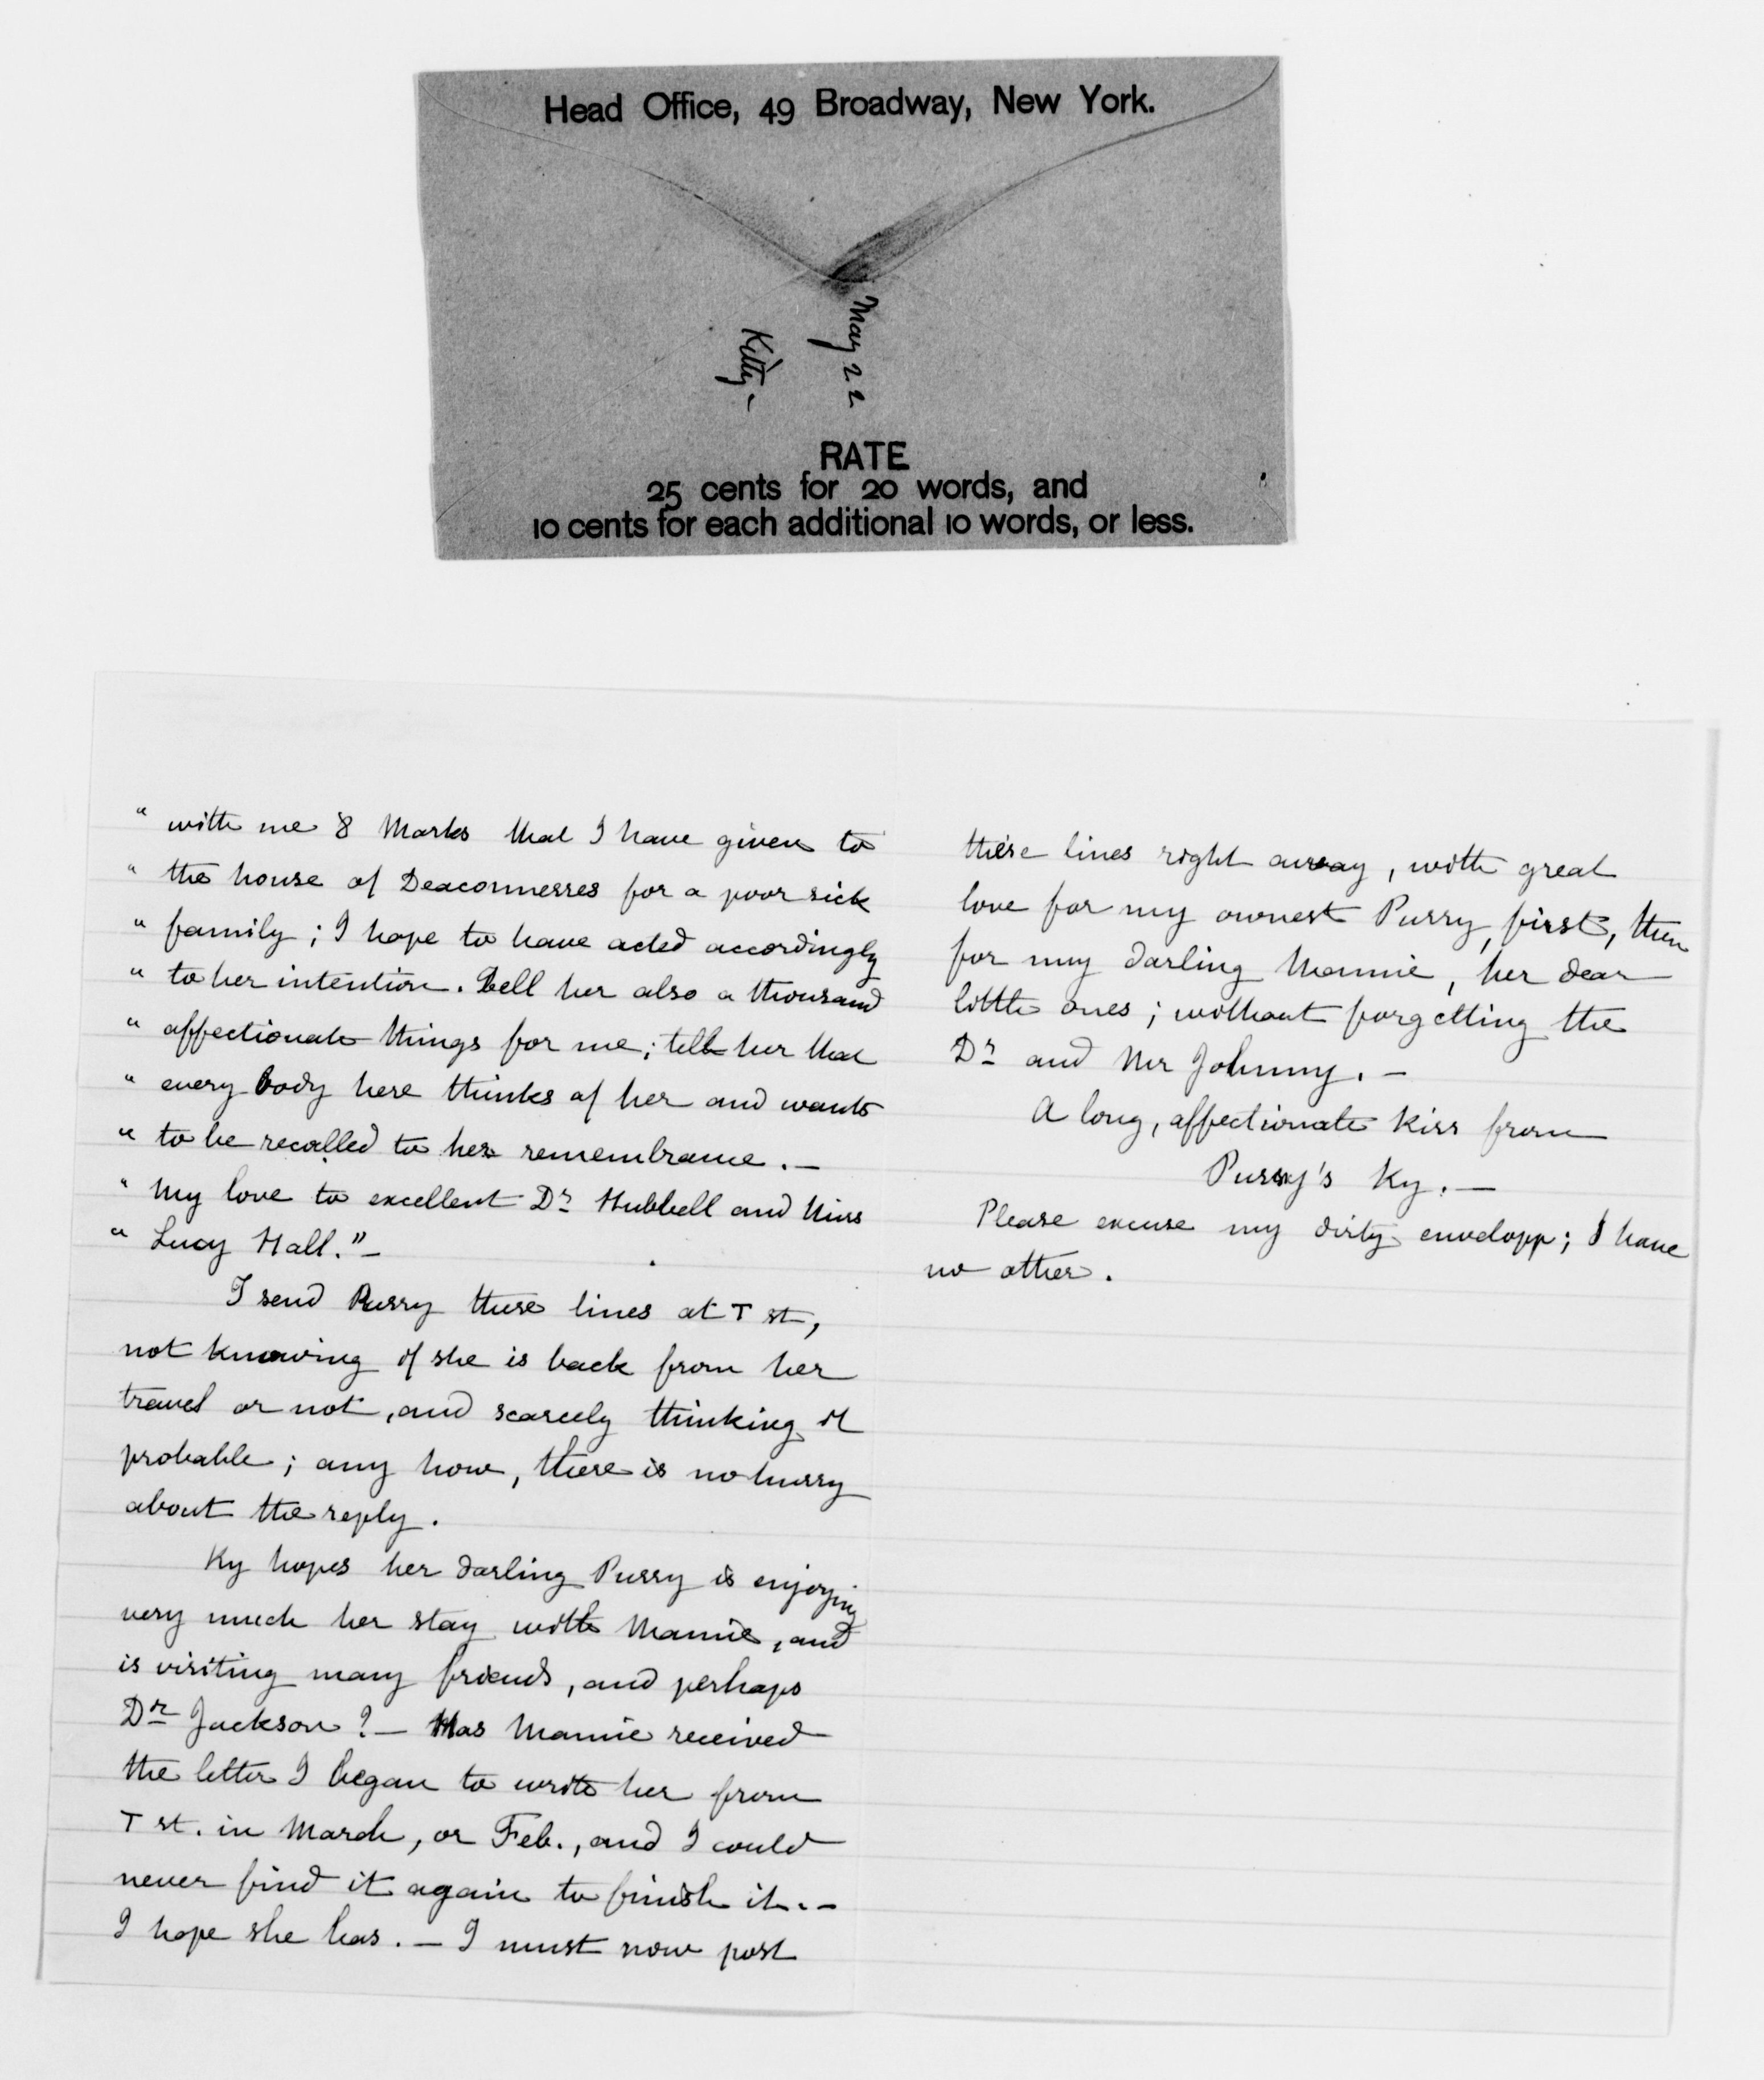 Head Office, 49 Broadway, New York.
May 22
Kitty -
RATE
25 cents for 20 words, and
10 cents for each additional 10 words, or less.
" with me 8 Marks that I have given to
" the house of Deaconnesses for a poor sick
" family; I hope to have acted accordingly
" to her intention. Tell her also a thousand
" affectionate things for me; tell her that
" every body here thinks of her and wants
" to be recalled to her remembrance. -
" My love to excellent Dr Hubbell and Miss
" Lucy Hall." -
I send Pussy these lines at T st,
not knowing if she is back from her
travel or not, and scarcely thinking it
probable; any how, there is no hurry
about the reply.
Ky hopes her darling Pussy is enjoying
very much her stay with Mamie, and
is visiting many friends, and perhaps
Dr Jackson? - Has Mamie received
the letter I began to write her from
T st. in March, or Feb., and I could
never find it again to finish it. -
I hope she has. - I must now post
these lines right away, with great
love for my ownest Pussy, first, then
for my darling Mamie, her dear
little ones; without forgetting the
Dr and Mr Johnny. -
A long, affectionate kiss from
Pussy's Ky. -
Please excuse my dirty envelopp; I have
no other.